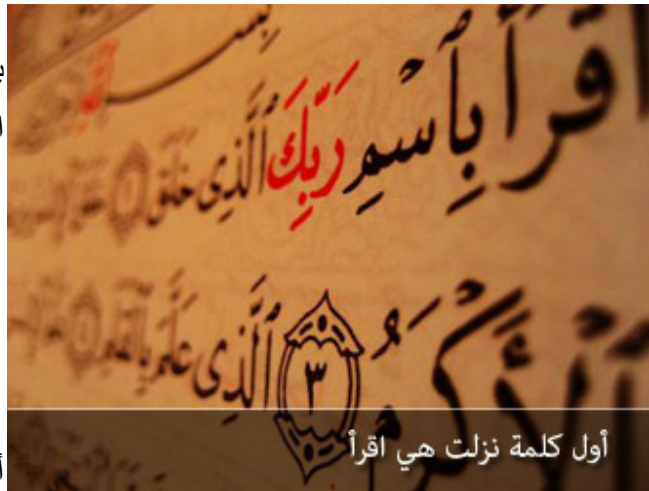 ٱقْرَأْ بِٱسْمِ رَبِّكَ ٱلَّذِى خَلَقَ ١
ٱلْأَكْرَمُ ٣ ٱلَّذِى عَلَّمَ بِٱلْقَلَمِ
أول كلمة نزلت هي اقرأ